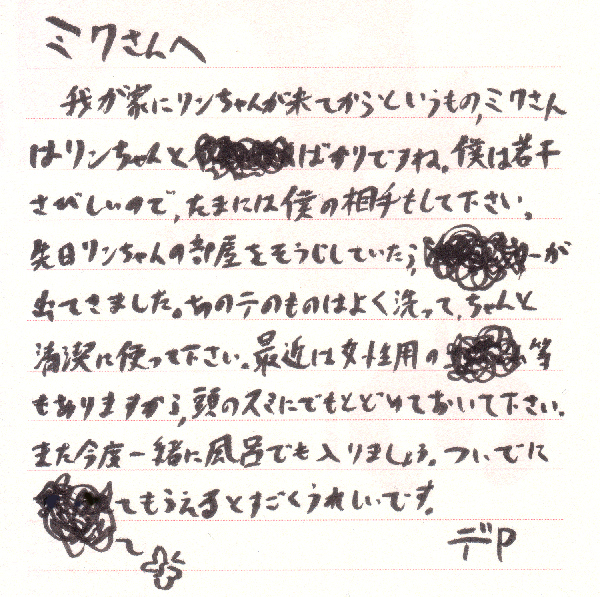 ミクさんへ
我が家にリンちゃんが来てからというもの、ミクさん
はリンちゃんと ばかりですね。僕は若干
さびしいので、たまには僕の相手もして下さい。
先日リンちゃんの部屋をそうじしていたら、 ーが
出てきました。あのテのものはよく洗って、ちゃんと
清潔に使って下さい。最近は女性用の 等
もありますから、頭のスミにでもとどめておいて下さい。
また今度一緒に風呂でも入りましょう。ついでに
てもらえるとすごくうれしいです。
デP